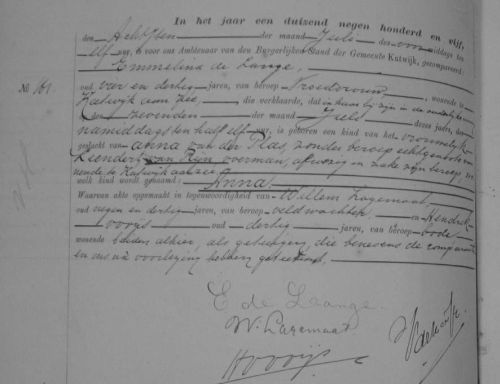 In het jaar een duizend negen honderd en vijf,
den Achtsten der maand Juli des voormiddags ten
elf ure, is voor ons Ambtenaar van den Burgerlijken Stand der Gemeente Katwijk, gecompareerd:
Emmelina de Lange,
oud vier en dertig jaren, van beroep Vroedvrouw, wonende te
No 161 Katwijk aan Zee, die verklaarde, dat in haar bij zijn in de
den zevenden der maand Juli dezes jaars, des
namiddags ten half elf ure, is geboren een kind van het vrouwelijk
geslacht van Anna van der Plas, zonder beroep echtgenoote van
Leendert van Rijn voerman, afwezig in zake zijn beroep, wo-
nende te Katwijk aan Zee
welk kind wordt genaamd: Anna
Waarvan akte opgemaakt in tegenwoordigheid van Willem Lagemaat
oud negen en dertig jaren, van beroep veldwachter en Hendrik
Hooijs oud dertig jaren, van beroep bode
wonende beiden alhier, als getuigen, die benevens de comparante
en ons na voorlezing hebben geteekend.
E de Lange.
W. Lagemaat
Hooijs